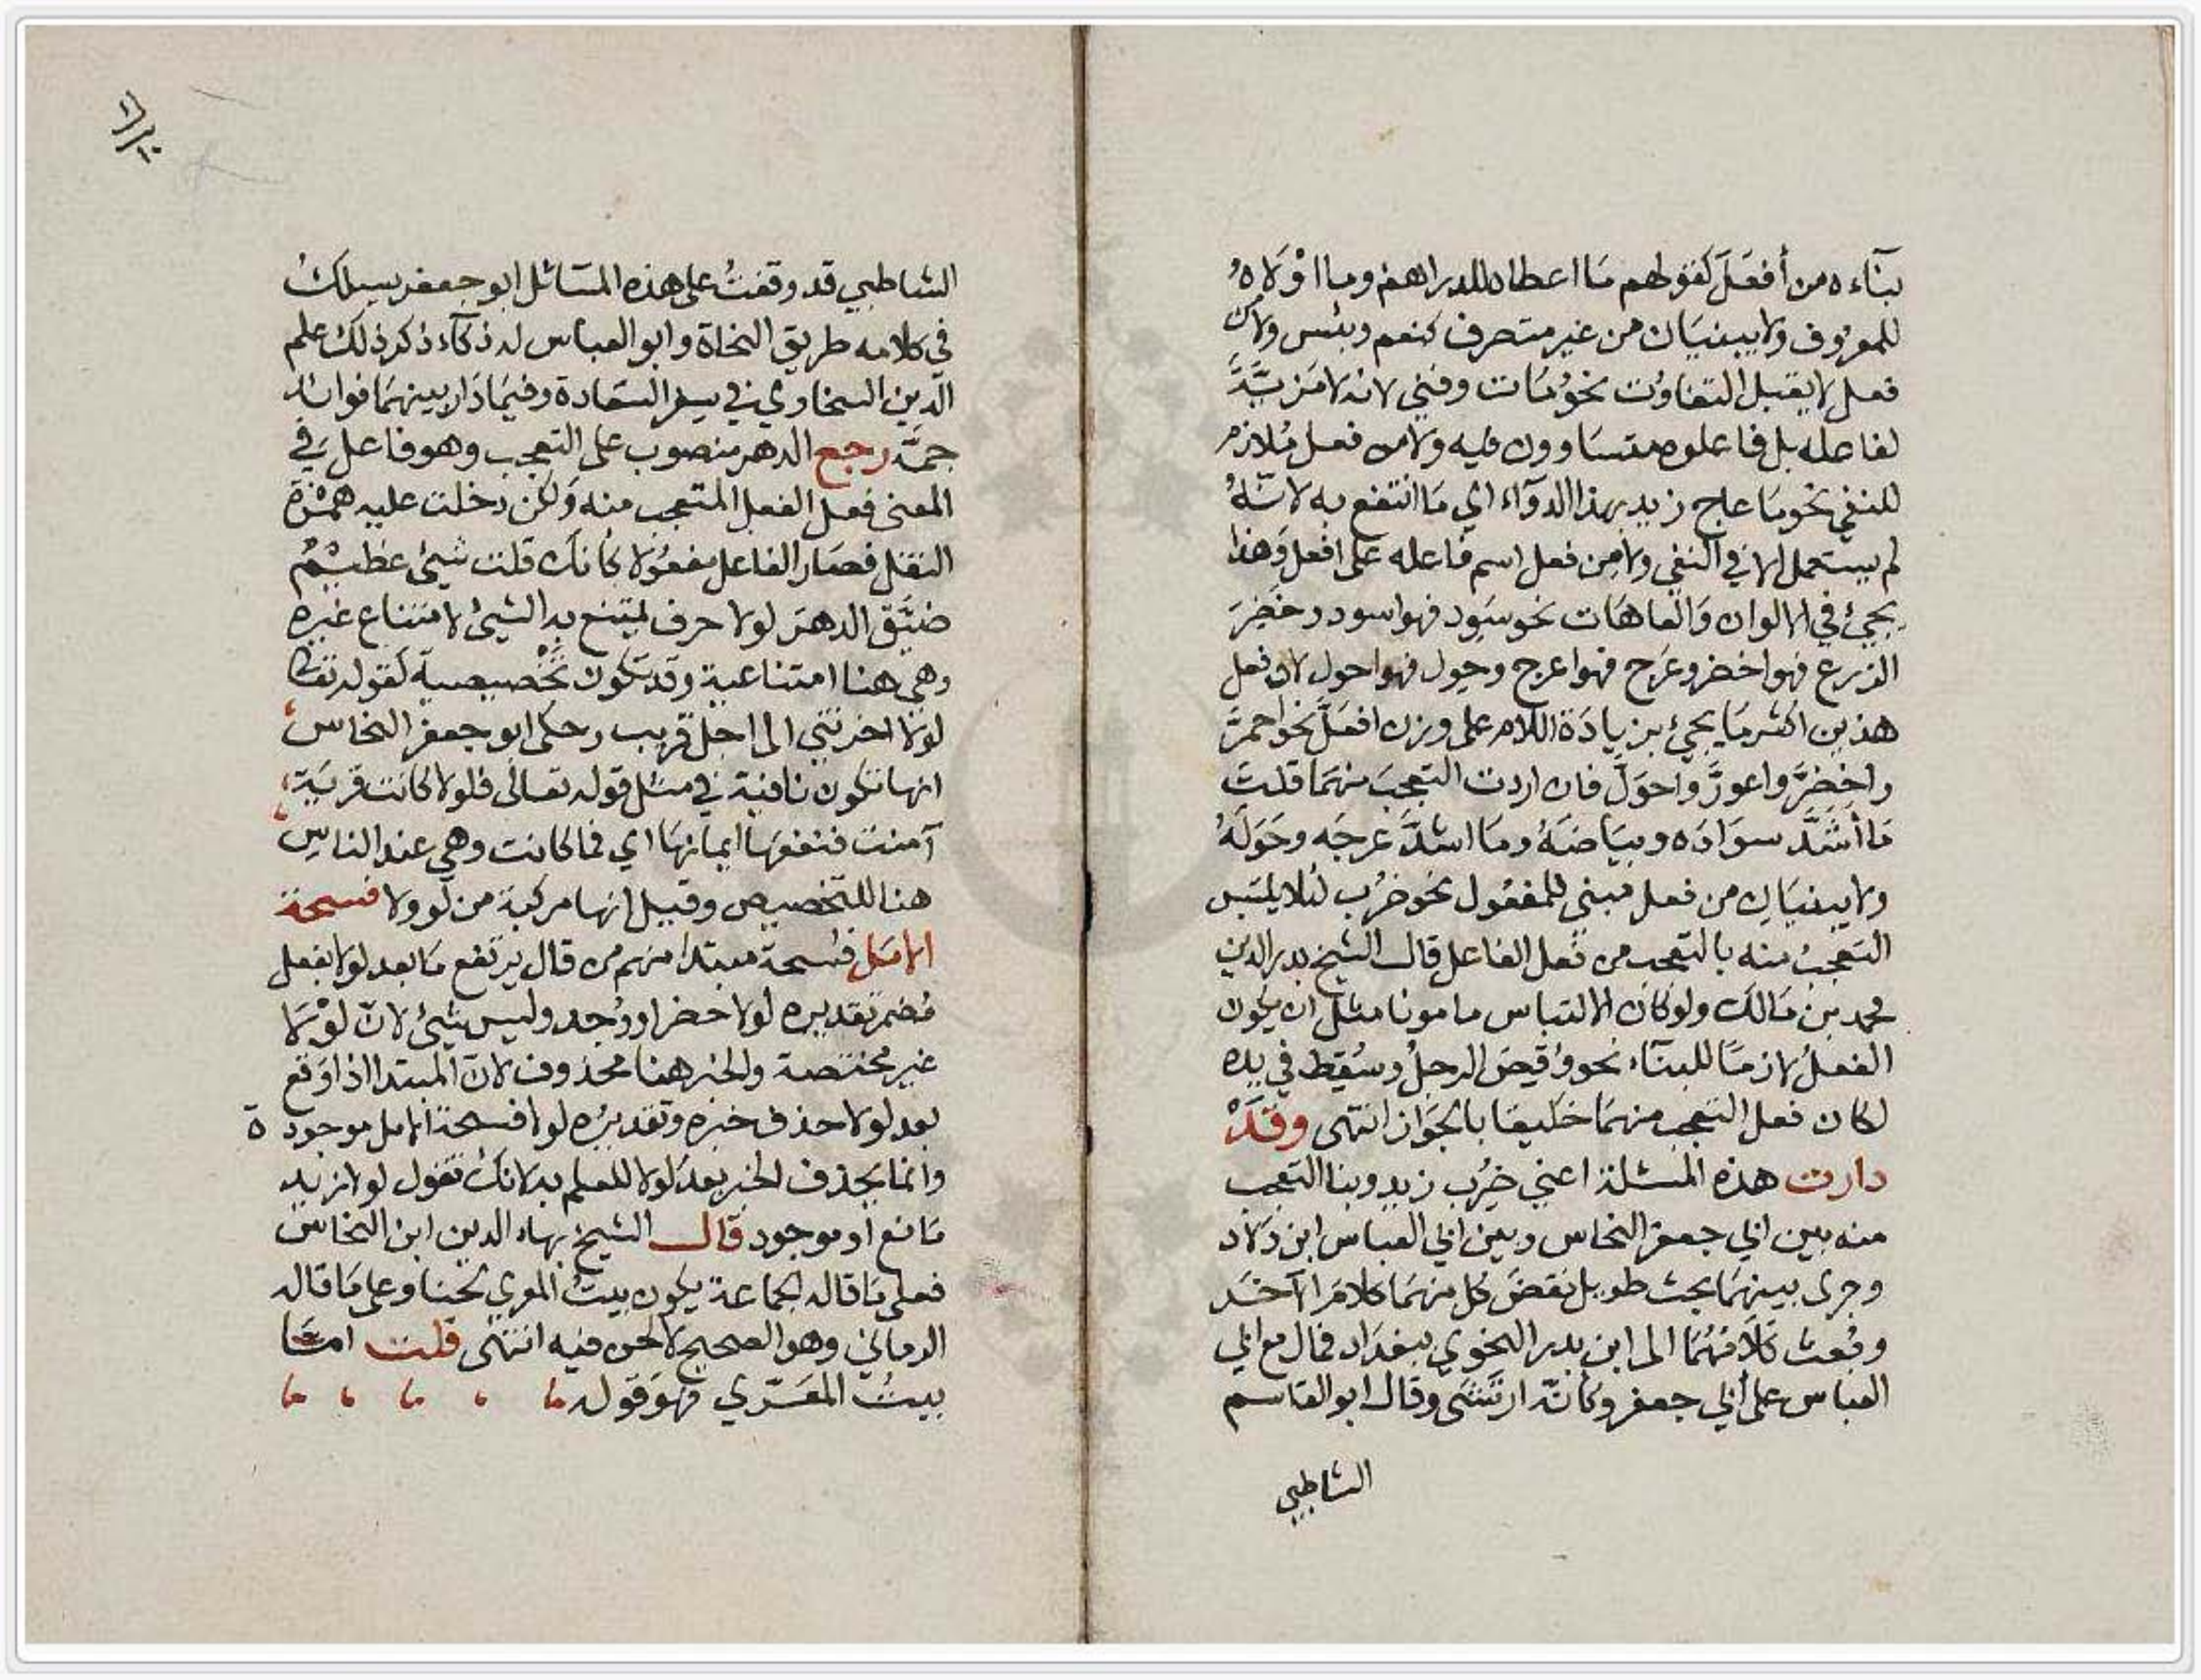 بنآءه من أفعَلَ كقولهم مَا اعطاه للدراهم وما اوْلَاهُ
للمعرُوف ولا يبنيَان من غير متصرف كنعم وبئس ولا من
فعل لا يقبل التفاوُت نحوُ مَات وفني لانه لا مَزيَّةَ
لفاعله بل فاعلوه متسَاوون فيه ولا من فعل مُلازم
للنفي نحو مَا عاج زيد بهذا الدوَآء اي مَا انتفع به لانّهُ
لم يستعمل الا في النفي ولا من فعل اسم فاعله على افعل وَهذا
يجيئ في الالوان وَالعاهَات نحو سَوِد فهو اسود وخَضِرَ
الزرع فهو اخضر وعَرِج فهو اعرج وحول فهو احول لان فعل
هذين اكثر مَا يجيئ بزيادَة اللام على وزن افعَلَّ نحو احمرَّ
واخضَرَّ واعورَّ واحوَلَّ فان اردت التعجبَ منهمَا قلتَ
مَا أشَدَّ سوَادَه وبيَاضَهُ ومَا اشدَّ عَرجَه وحَوَلَهُ
ولا يبنيَان من فعل مبني للمفعُول نحو ضُرِب لئلا يلتبس
التعجبُ منه بالتعجب من فعل الفاعل قال الشيخ بدر الدين
محمد بن مَالك ولو كان الالتباس مامونا مثل ان يكون
الفعلُ لازمًا للبنآء نحو وُقِصَ الرجلُ وسُقِط في يده
لكان فعل التعجب منهمَا خليقا بالجوَاز انتهى وقَدْ
دارت هذه المسئلة اعني ضُرِب زيد وبنا التعجب
منه بين ابي جعفر النحاس وبين ابي العباس ابن وَلاد
وجرى بينهمَا بحث طويل نقضَ كل منهمَا كلامَ الآخَر
وبُعث كلامُهُمَا الى ابن بدر النحوي ببغدَاد فمال مع ابي
العباس على أبي جعفر وكانّه ارتشَى وقال ابو القاسم
الشاطبي
الشاطبي قد وقفتُ على هذه المسَائل ابو جعفر يسلكُ
في كلامه طريق النحاة وابو العباس له ذكآء ذكر ذلك علم
الدين السخاوي في سفر السعَادة وفيمَا دَار بينهمَا فوائد
جمَّه رجع الدهر منصوب على التعجب وهو فاعل في
المعنى فعل الفعل المتعجب منه وَلكن دخلت عليه همْزة
النقل فصَار الفاعل مفعُولا كانك قلت شيئ عظيْمٌ
ضيَّق الدهرَ لولا حرف يمتنع به الشيئ لامتناع غيره
وهي هنا امتناعية وقد تكون تَخْصيصية كقوله تعَا
لولَا اخرتني الى اجل قريب وحكى ابو جعفر النحاس
انها تكون نافية في مثل قوله تعالى فلولا كانت قريَة
آمنت فنفعهَا ايمانهَا اي فما كانت وهي عند الناس
هنا للتخصيص وقيل انها مركبة من لو ولا فسحة
الامَل فسحة مبتدا منهم من قال يرتفع مَا بعد لولا بفعل
مُضمر تقديره لولا حضر او وُجد وليس بشيئ لانّ لوْلَا
غير مختصة والخبر هنا محذوف لانّ المبتدا اذا وَقع
بعد لولا حذف خبره وتقديرُه لولا فسحة الامل موجودة
وانما يحذف الخبر بعد لولا للعلم به لانك تقول لولا زيد
مَانع او موجود قال الشيخ بهاء الدين ابن النحاس
فعلى مَا قاله الجماعة يكون بيتُ المعري لحنا وعلى مَا قاله
الرماني وهو الصحيح لا لحن فيه انتهى قلت امّا
بيتُ المعَرّي فهوَ قوله